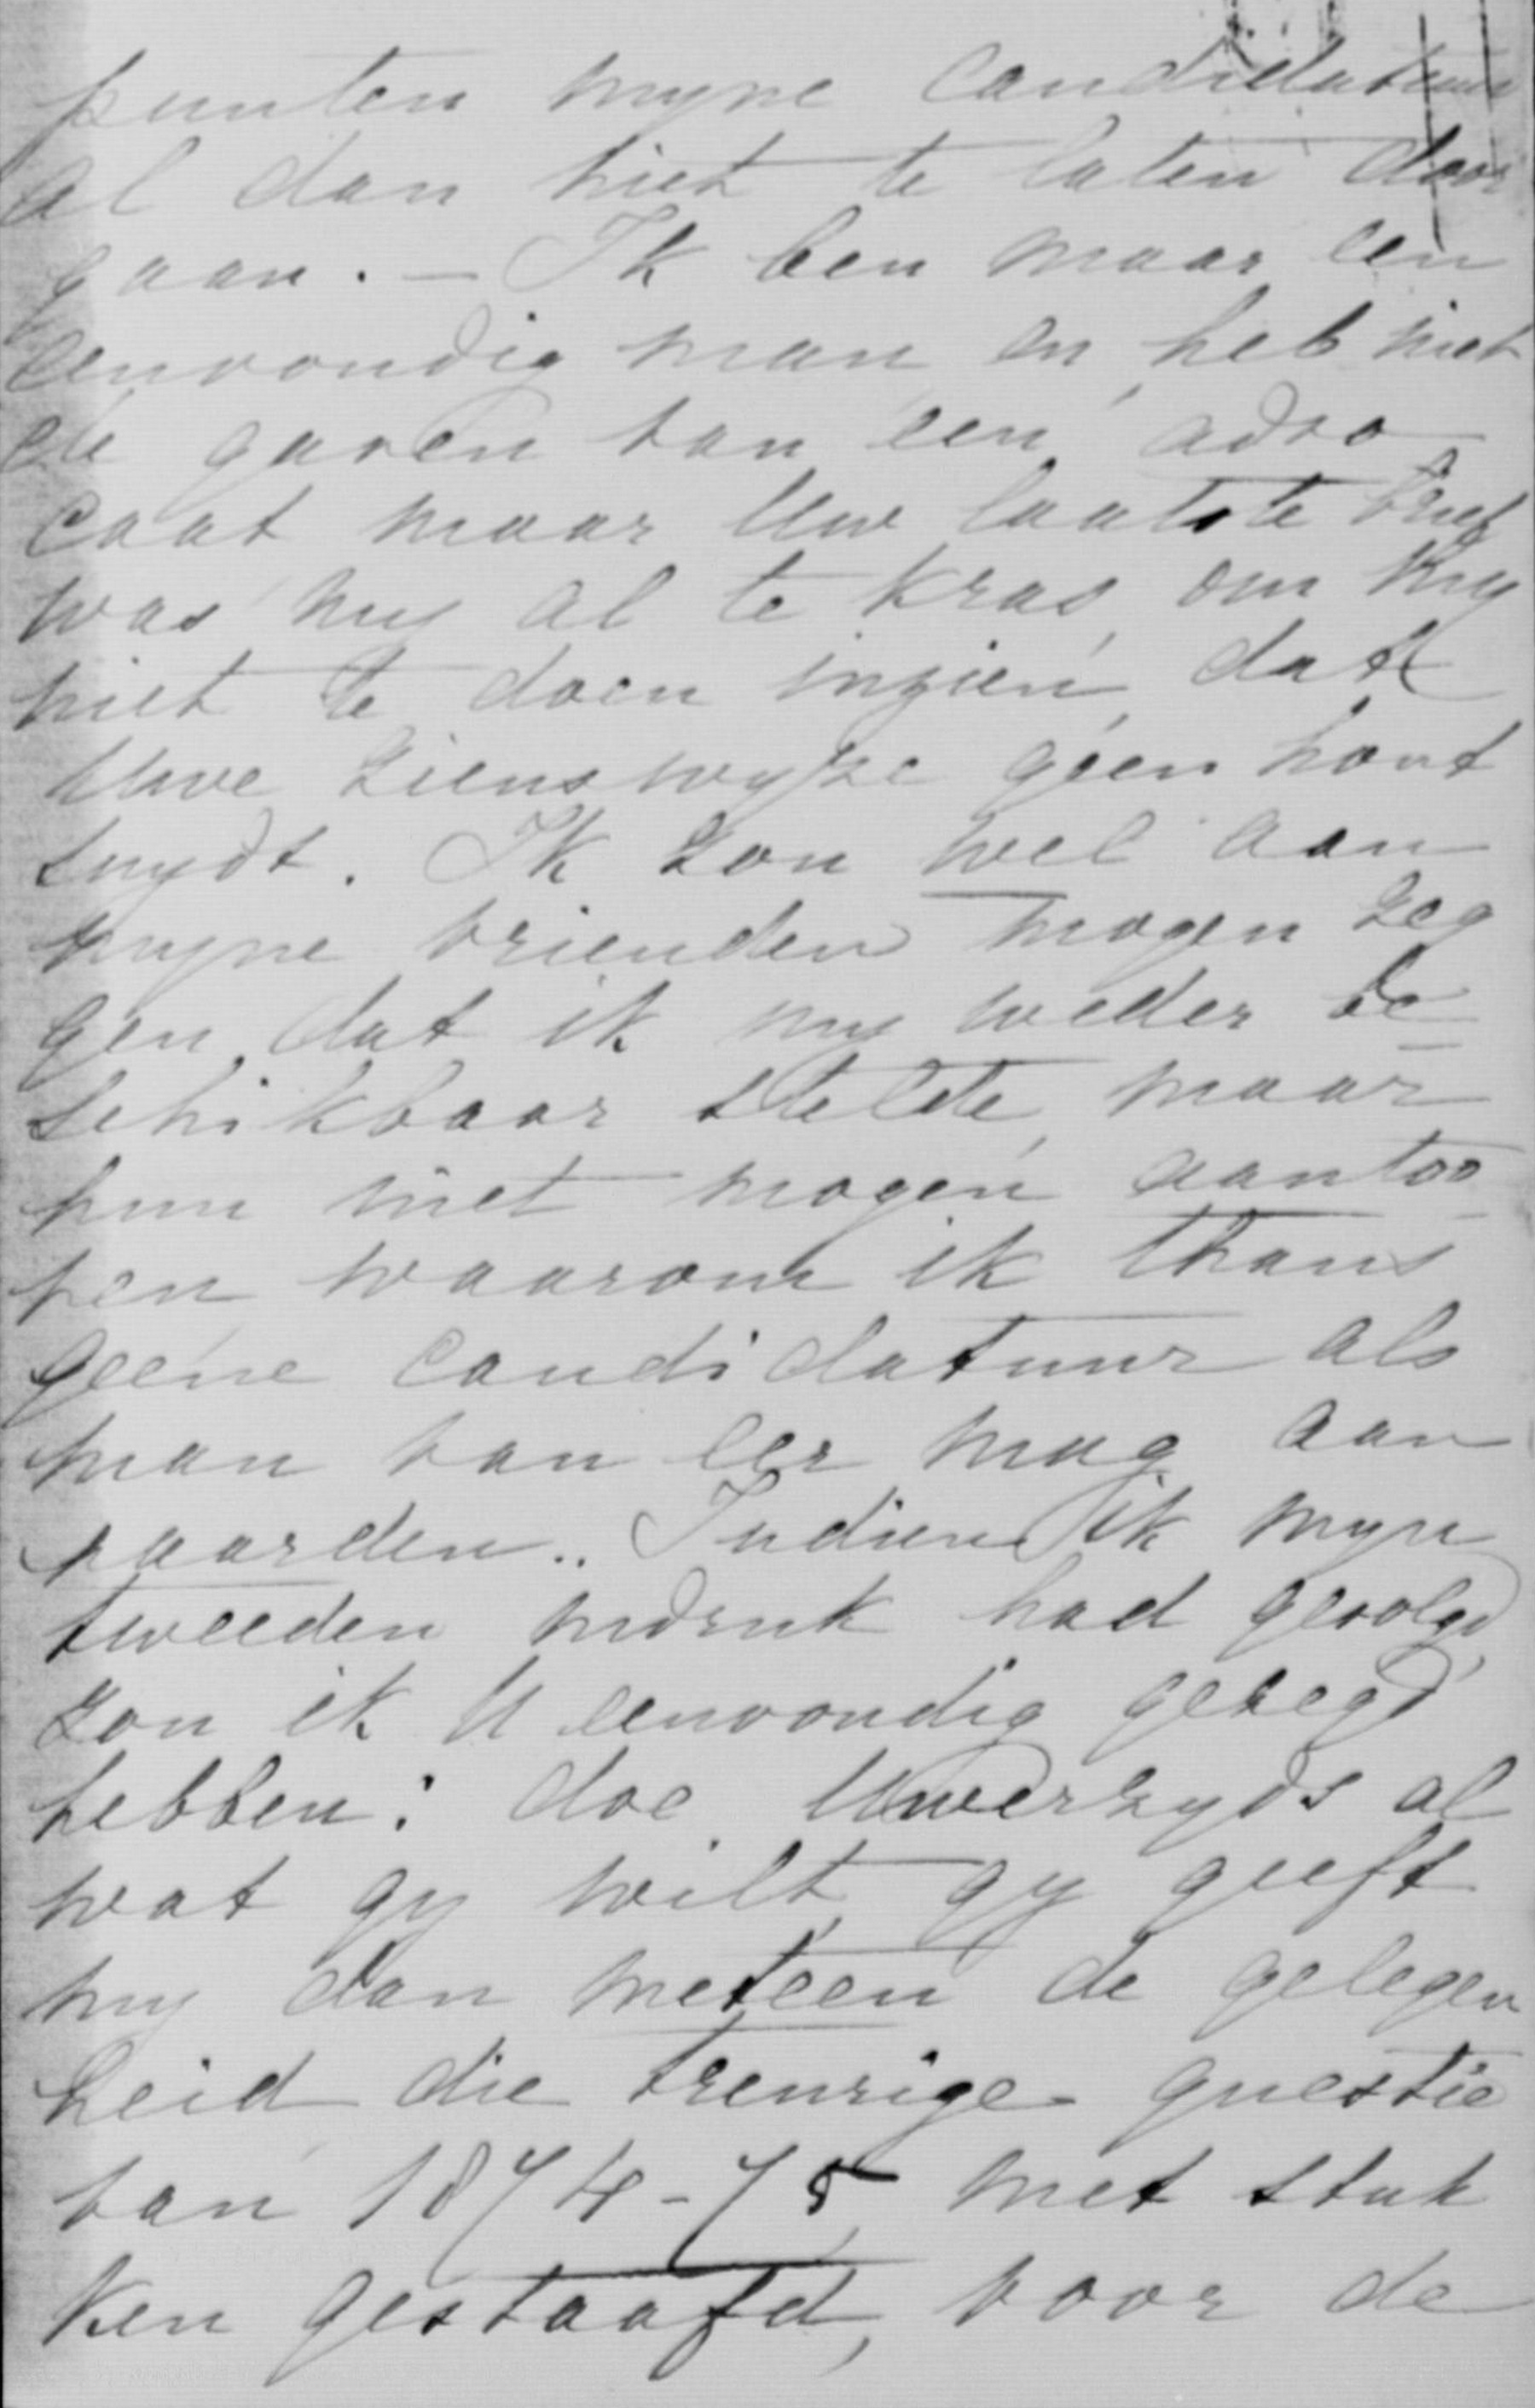 punten myne candidatuur
al dan niet te laten door
gaan. — Ik ben maar een
eenvoudig man en heb niet
de gaven van een advo
caat maar Uw laatste brief
was my al te kras, om my
niet te doen inzien, dat
Uwe zienswyze geen hout
snydt. Ik zou wel aan
myne vrienden mogen zeg
gen, dat ik my weder be
schikbaar stelde, maar
hun niet mogen aantoo
nen waarom ik thans
geene candidatuur als
man van eer mag aan
vaarden.. Indien ik myn
tweeden indruk had gevolgd,
zou ik U eenvoudig gezegd
hebben: doe Uwerzyds al
wat gy wilt, gy geeft
my dan meteen de gelegen
heid die treurige questie
van 1874-75, met stuk
ken gestaafd, voor de